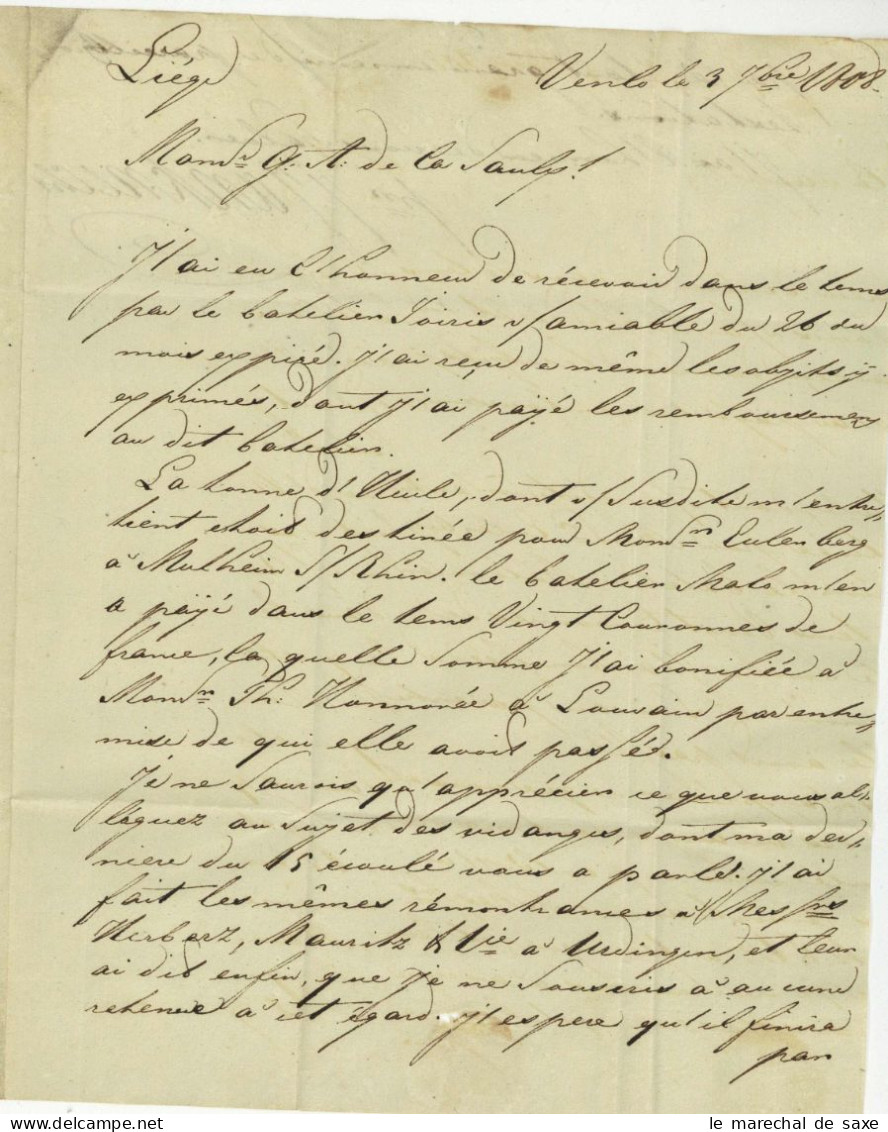 Liége
Venlo le 3 7bre 1808.
Monsr G: A: de la Saulx!
J'ai eu l'honneur de récevoir dans le tems
par le batelier Joiris v/amiable du 26 du
mois expiré. J'ai reçu de même les objets y
exprimés, dont j'ai païjé les remboursemens
au dit batelier.
La tonne d'Huile, dont v/Susdite m'entre„
tient etoit destinée pour Monsr Eulenberg
à Mulheim S/Rhin. le batelier Malo m'en
a païjé dans le tems Vingt Couronnes de
france, la quelle Somme J'ai bonifiée à
Monsr Th: Honnorée à Louvain par entre„
mise de qui elle avoit passée.
Je ne Saurois qu'apprécier ce que vous al„
léguez au Sujet des vidanges, dont ma der„
niere du 15 écoulé vous a parlé. j'ai
fait les mêmes rémontrances à Messrs
Herberz, Mauritz & Cie à Urdingen, et leur
ai dit enfin, que Je ne Souscris à aucune
retenue à cet égard. j'espere qu'il finira
par
le marechal de saxe